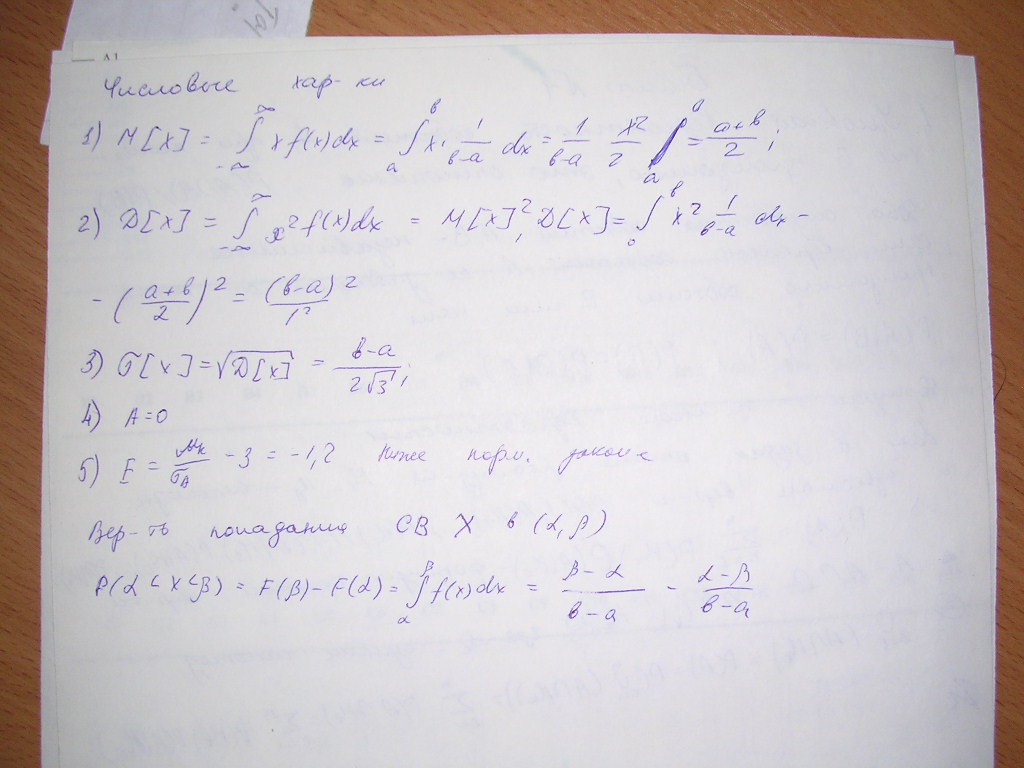 Числовые хар-ки
1) M[X] = ∫_{-∞}^{∞} x f(x)dx = ∫_a^в x · 1/(в-a) dx = 1/(в-a) x²/2 |_a^в = (a+в)/2 ;
2) D[X] = ∫_{-∞}^{∞} x² f(x)dx = M[X]², D[X] = ∫_0^в x² 1/(в-a) dx -
- ((a+в)/2)² = (в-a)²/12
3) σ[x] = √D[x] = (в-a)/(2√3) ;
4) A=0
5) E = μ_к/σ_A - 3 = -1,2 Ниже норм. закона
Вер-ть попадания СВ X в (α, β)
P(α < X < β) = F(β) - F(α) = ∫_α^β f(x)dx = (β-α)/(в-a) - (α-β)/(в-a)